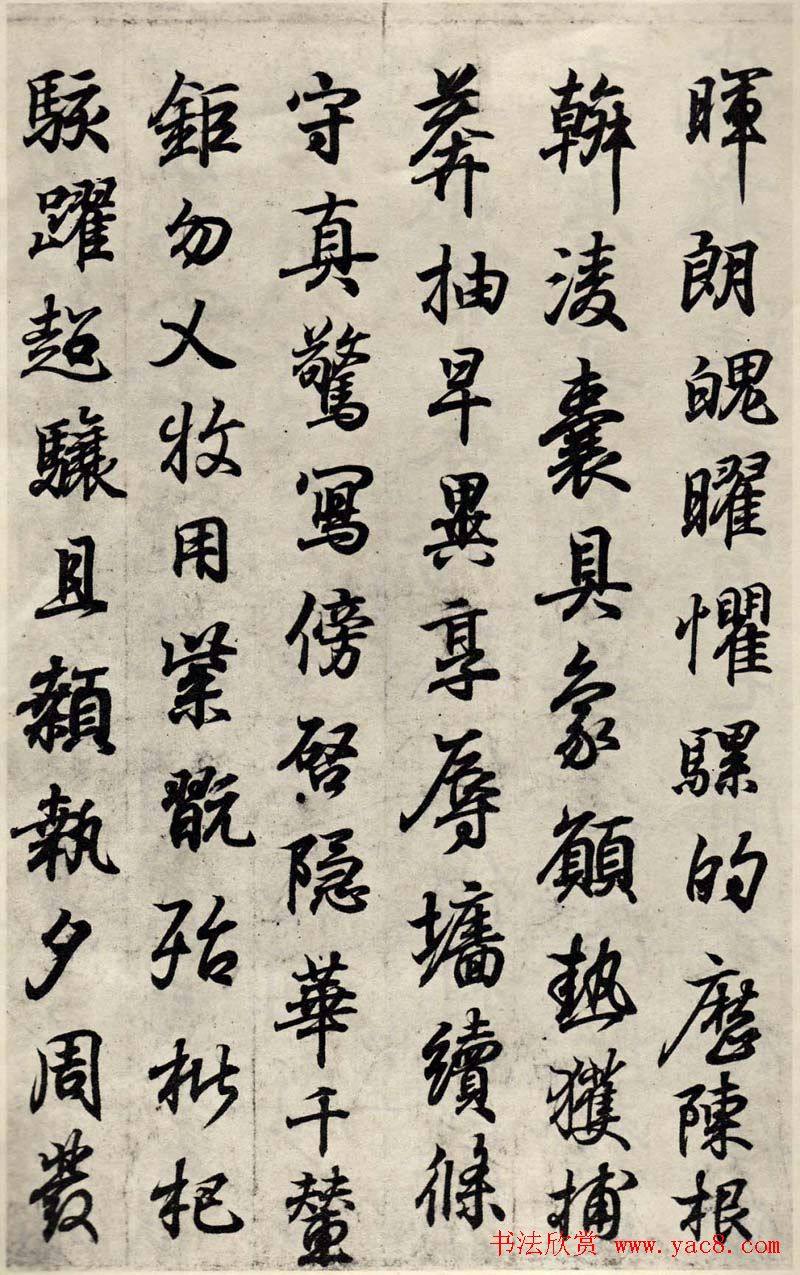 暉朗魄曜懼騾的歷陳根
斡淩囊具象願熱獲捕
莽抽早異享辱墻續條
守真驚寫傍啓隱華千輦
鉅勿乂牧用紫翫殆枇杷
駭躍超驤且顙執夕周發
书法欣赏 www.yac8.com